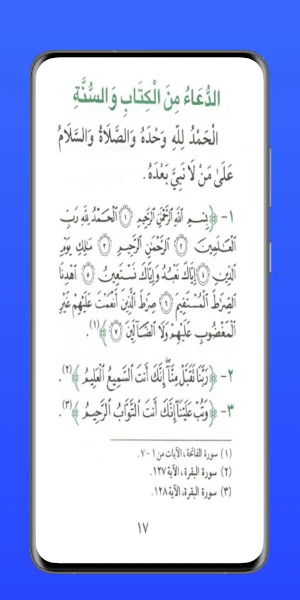 الدُّعَاءُ مِنَ الْكِتَابِ وَالسُّنَّةِ
الْحَمْدُ لِلَّهِ وَحْدَهُ وَالصَّلَاةُ وَالسَّلَامُ
عَلَى مَنْ لَا نَبِيَّ بَعْدَهُ.
١- ﴿بِسْمِ اللَّهِ الرَّحْمَٰنِ الرَّحِيمِ ۝١ الْحَمْدُ لِلَّهِ رَبِّ
الْعَٰلَمِينَ ۝٢ الرَّحْمَٰنِ الرَّحِيمِ ۝٣ مَٰلِكِ يَوْمِ
الدِّينِ ۝٤ إِيَّاكَ نَعْبُدُ وَإِيَّاكَ نَسْتَعِينُ ۝٥ اهْدِنَا
الصِّرَٰطَ الْمُسْتَقِيمَ ۝٦ صِرَٰطَ الَّذِينَ أَنْعَمْتَ عَلَيْهِمْ غَيْرِ
الْمَغْضُوبِ عَلَيْهِمْ وَلَا الضَّآلِّينَ ۝٧﴾(١).
٢- ﴿رَبَّنَا تَقَبَّلْ مِنَّآ إِنَّكَ أَنتَ السَّمِيعُ الْعَلِيمُ﴾(٢).
٣- ﴿وَتُبْ عَلَيْنَآ إِنَّكَ أَنتَ التَّوَّابُ الرَّحِيمُ﴾(٣).
(١) سورة الفاتحة، الآيات من ١-٧.
(٢) سورة البقرة، الآية ١٢٧.
(٣) سورة البقرة، الآية ١٢٨.
١٧